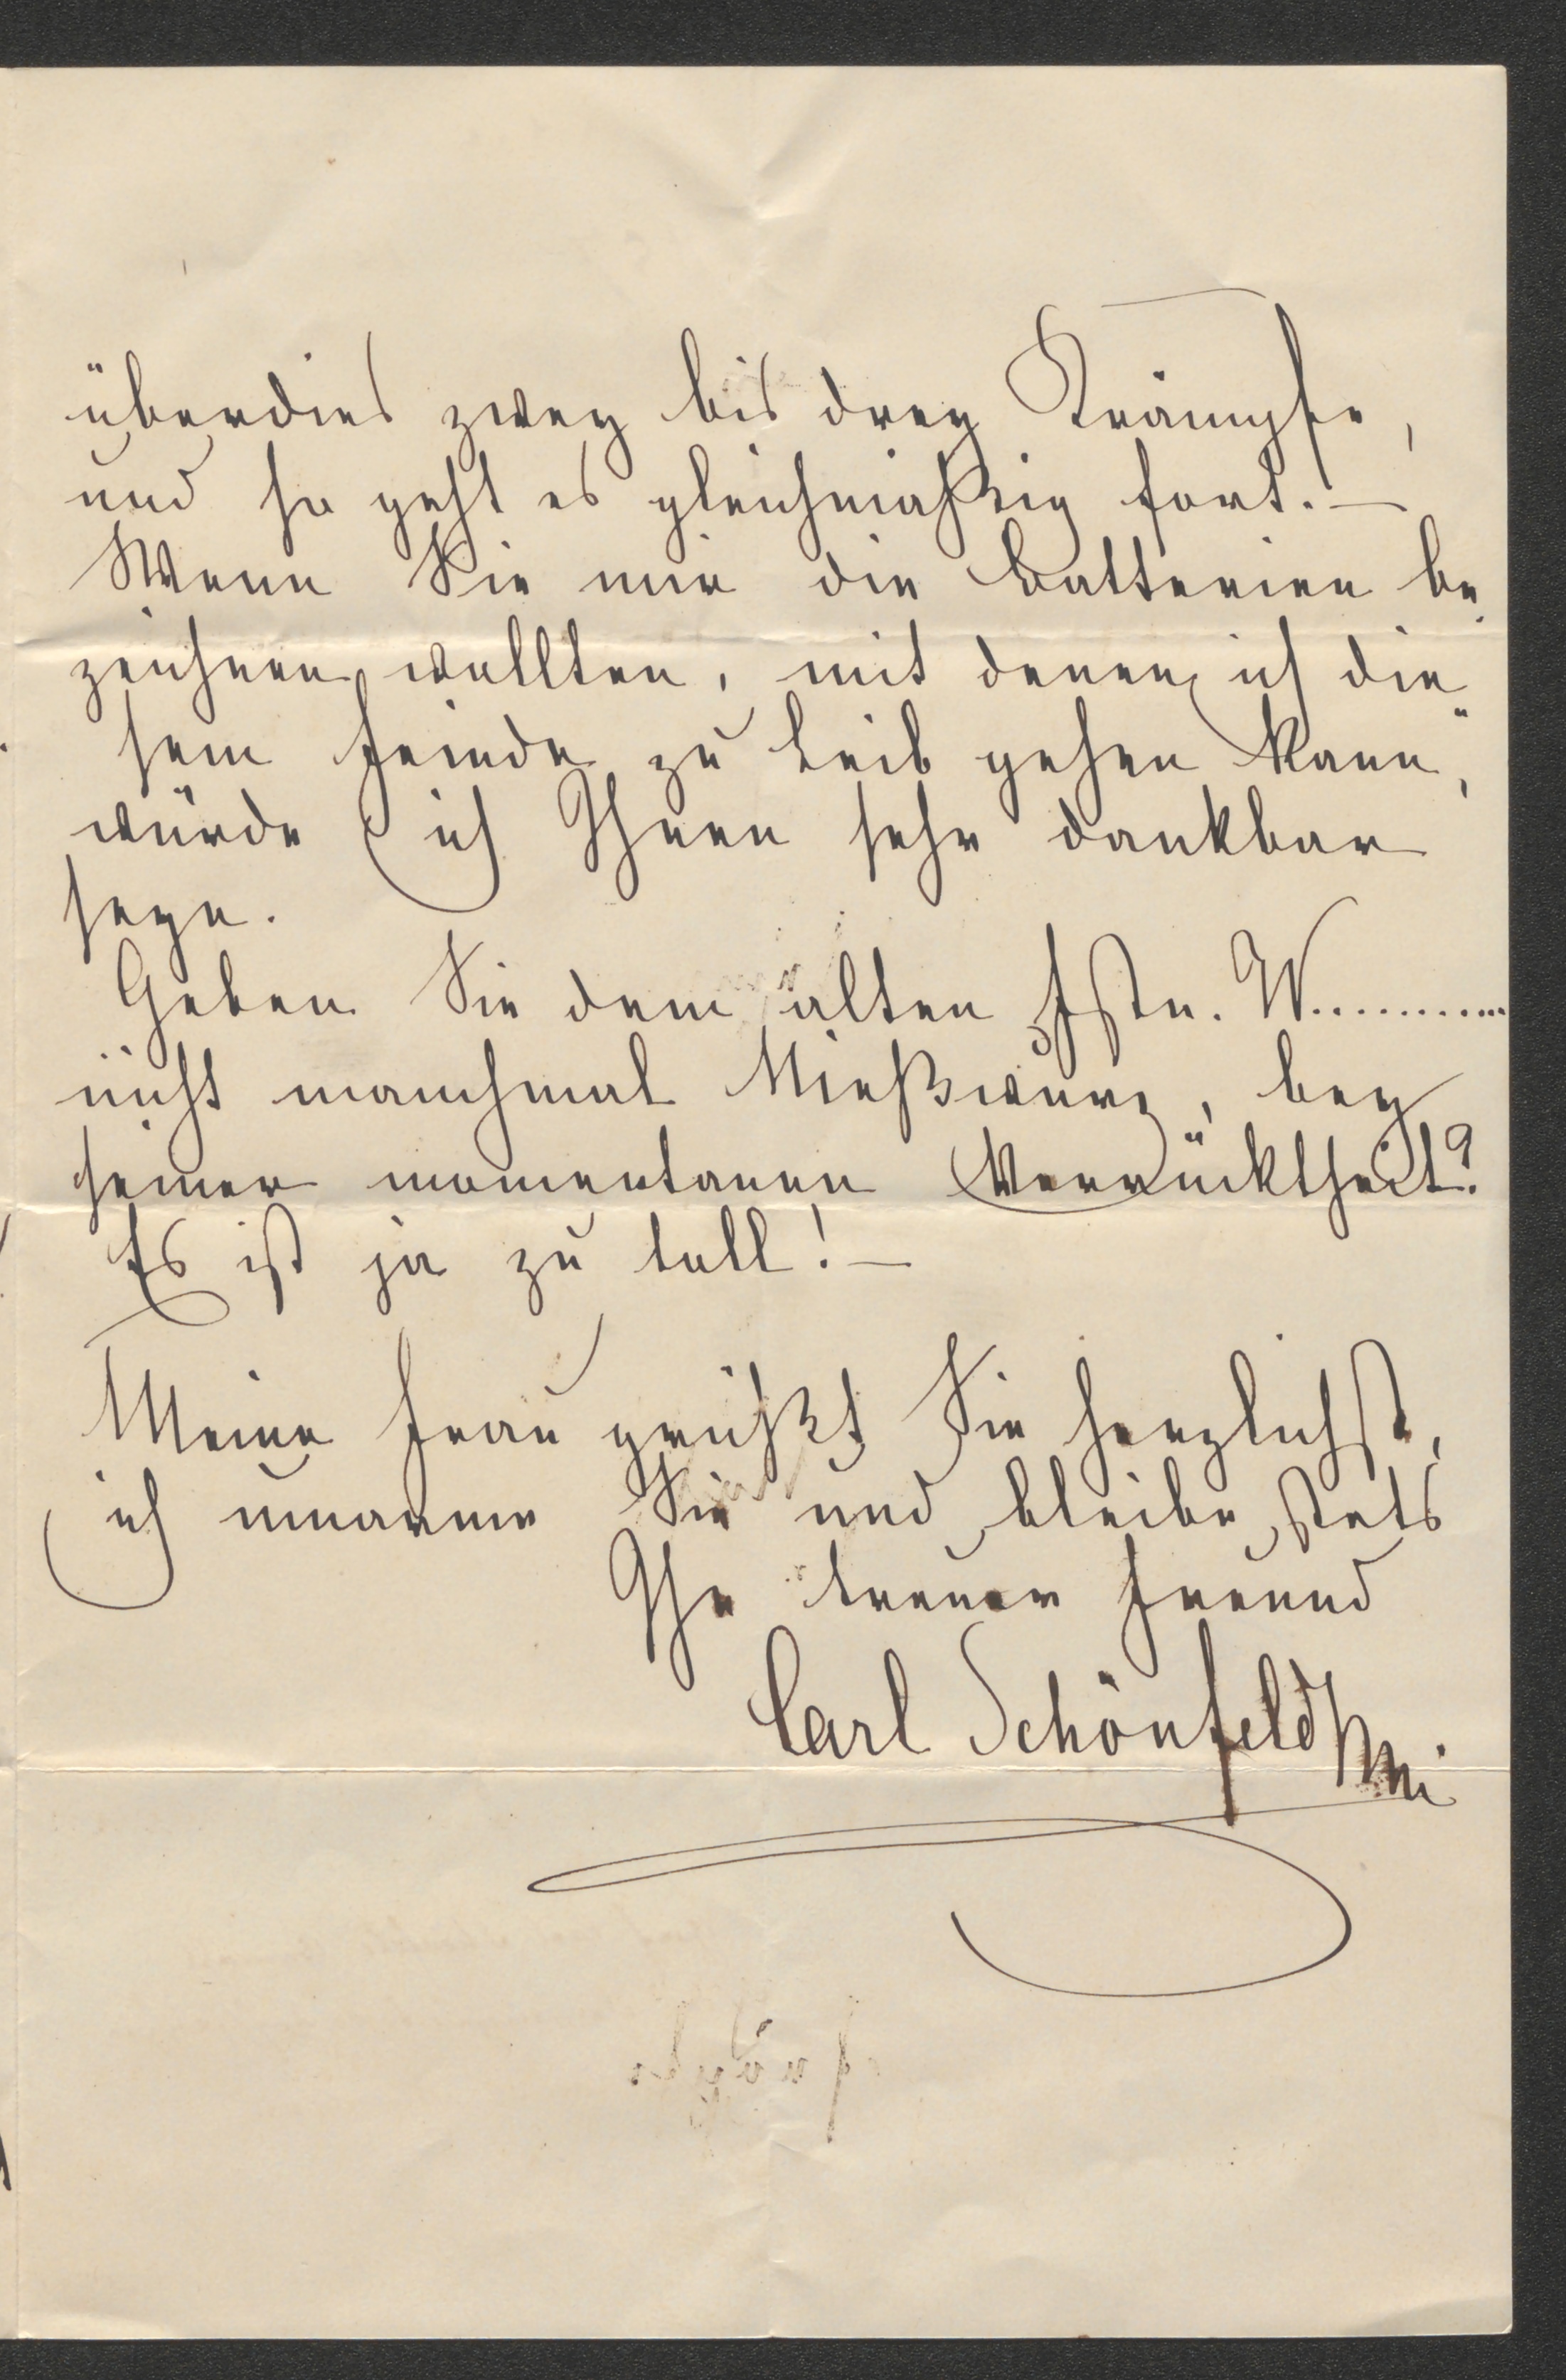 überdies zwey bis drey Krämpfe,
und so geht es gleichmäßig fort. —
Wenn Sie mir die Batterien be
zeichnen wollten, mit denen ich die
sem Feinde zu Leib gehen kann,
würde ich Ihnen sehr dankbar
seyn.
Geben Sie dem alten W...........
nicht manchmal Nießwurz, bey
seiner momentanen Verrücktheit?
Es ist ja zu toll! —
Meine Frau grüßt Sie herzlichst,
ich umarme Sie und bleibe stets
Ihr treuer Freund
Carl Schönfeld